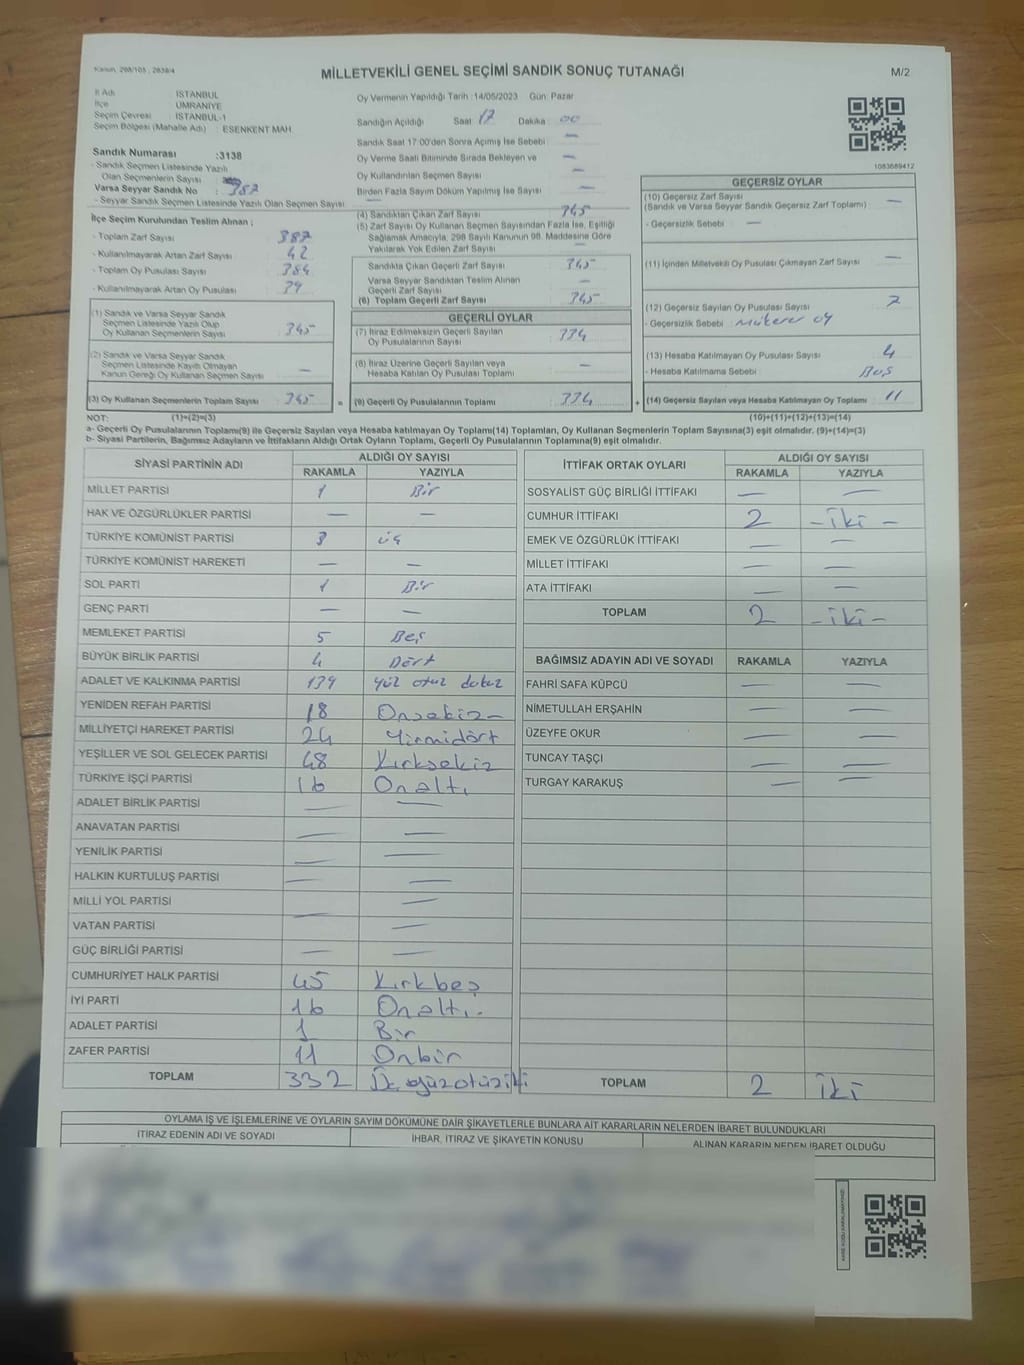 Kanun, 298/105 ; 2839/4
MİLLETVEKİLİ GENEL SEÇİMİ SANDIK SONUÇ TUTANAĞI
M/2
İl Adı : İSTANBUL
İlçe : ÜMRANİYE
Seçim Çevresi : İSTANBUL-1
Seçim Bölgesi (Mahalle Adı) : ESENKENT MAH.
Sandık Numarası :3138
- Sandık Seçmen Listesinde Yazılı
Olan Seçmenlerin Sayısı : 387
Varsa Seyyar Sandık No :
- Seyyar Sandık Seçmen Listesinde Yazılı Olan Seçmen Sayısı : —
İlçe Seçim Kurulundan Teslim Alınan ;
- Toplam Zarf Sayısı 387
- Kullanılmayarak Artan Zarf Sayısı 42
- Toplam Oy Pusulası Sayısı 384
- Kullanılmayarak Artan Oy Pusulası 39
(1) Sandık ve Varsa Seyyar Sandık
Seçmen Listesinde Yazılı Olup
Oy Kullanan Seçmenlerin Sayısı 345
(2) Sandık ve Varsa Seyyar Sandık
Seçmen Listesinde Kayıtlı Olmayan
Kanun Gereği Oy Kullanan Seçmen Sayısı —
(3) Oy Kullanan Seçmenlerin Toplam Sayısı 345 =
Oy Vermenin Yapıldığı Tarih :14/05/2023 Gün: Pazar
Sandığın Açıldığı Saat 17 Dakika 00
Sandık Saat 17:00'den Sonra Açılmış İse Sebebi : —
Oy Verme Saati Bitiminde Sırada Bekleyen ve
Oy Kullandırılan Seçmen Sayısı —
Birden Fazla Sayım Döküm Yapılmış İse Sayısı —
(4) Sandıktan Çıkan Zarf Sayısı 345
(5) Zarf Sayısı Oy Kullanan Seçmen Sayısından Fazla İse, Eşitliği
Sağlamak Amacıyla, 298 Sayılı Kanunun 98. Maddesine Göre
Yakılarak Yok Edilen Zarf Sayısı —
Sandıkta Çıkan Geçerli Zarf Sayısı 345
Varsa Seyyar Sandıktan Teslim Alınan
Geçerli Zarf Sayısı —
(6) Toplam Geçerli Zarf Sayısı 345
GEÇERLİ OYLAR
(7) İtiraz Edilmeksizin Geçerli Sayılan
Oy Pusulalarının Sayısı 334
(8) İtiraz Üzerine Geçerli Sayılan veya
Hesaba Katılan Oy Pusulası Toplamı —
(9) Geçerli Oy Pusulalarının Toplamı 334 +
1083689412
GEÇERSİZ OYLAR
(10) Geçersiz Zarf Sayısı
(Sandık ve Varsa Seyyar Sandık Geçersiz Zarf Toplamı) —
- Geçersizlik Sebebi : —
(11) İçinden Milletvekili Oy Pusulası Çıkmayan Zarf Sayısı —
(12) Geçersiz Sayılan Oy Pusulası Sayısı 7
- Geçersizlik Sebebi : Mükerer oy
(13) Hesaba Katılmayan Oy Pusulası Sayısı 4
- Hesaba Katılmama Sebebi : Boş
(14) Geçersiz Sayılan veya Hesaba Katılmayan Oy Toplamı 11
NOT: (1)+(2)=(3) (10)+(11)+(12)+(13)=(14)
a- Geçerli Oy Pusulalarının Toplamı(9) ile Geçersiz Sayılan veya Hesaba katılmayan Oy Toplamı(14) Toplamları, Oy Kullanan Seçmenlerin Toplam Sayısına(3) eşit olmalıdır. (9)+(14)=(3)
b- Siyasi Partilerin, Bağımsız Adayların ve İttifakların Aldığı Ortak Oyların Toplamı, Geçerli Oy Pusulalarının Toplamına(9) eşit olmalıdır.
SİYASİ PARTİNİN ADI ALDIĞI OY SAYISI
RAKAMLA YAZIYLA
MİLLET PARTİSİ 1 Bir
HAK VE ÖZGÜRLÜKLER PARTİSİ — —
TÜRKİYE KOMÜNİST PARTİSİ 3 üç
TÜRKİYE KOMÜNİST HAREKETİ — —
SOL PARTİ 1 Bir
GENÇ PARTİ — —
MEMLEKET PARTİSİ 5 Beş
BÜYÜK BİRLİK PARTİSİ 4 Dört
ADALET VE KALKINMA PARTİSİ 139 yüz otuz dokuz
YENİDEN REFAH PARTİSİ 18 Onsekiz
MİLLİYETÇİ HAREKET PARTİSİ 24 Yirmidört
YEŞİLLER VE SOL GELECEK PARTİSİ 48 Kırksekiz
TÜRKİYE İŞÇİ PARTİSİ 16 Onaltı
ADALET BİRLİK PARTİSİ — —
ANAVATAN PARTİSİ — —
YENİLİK PARTİSİ — —
HALKIN KURTULUŞ PARTİSİ — —
MİLLİ YOL PARTİSİ — —
VATAN PARTİSİ —
GÜÇ BİRLİĞİ PARTİSİ — —
CUMHURİYET HALK PARTİSİ 45 Kırkbeş
İYİ PARTİ 16 Onaltı.
ADALET PARTİSİ 1 Bir
ZAFER PARTİSİ 11 Onbir
TOPLAM 332 Üçyüzotuziki
İTTİFAK ORTAK OYLARI ALDIĞI OY SAYISI
RAKAMLA YAZIYLA
SOSYALİST GÜÇ BİRLİĞİ İTTİFAKI — —
CUMHUR İTTİFAKI 2 -iki-
EMEK VE ÖZGÜRLÜK İTTİFAKI — —
MİLLET İTTİFAKI — —
ATA İTTİFAKI — —
TOPLAM 2 -iki-
BAĞIMSIZ ADAYIN ADI VE SOYADI RAKAMLA YAZIYLA
FAHRİ SAFA KÜPCÜ — —
NİMETULLAH ERŞAHİN — —
ÜZEYFE OKUR — —
TUNCAY TAŞÇI — —
TURGAY KARAKUŞ — —
TOPLAM 2 iki
OYLAMA İŞ VE İŞLEMLERİNE VE OYLARIN SAYIM DÖKÜMÜNE DAİR ŞİKAYETLERLE BUNLARA AİT KARARLARIN NELERDEN İBARET BULUNDUKLARI
İTİRAZ EDENİN ADI VE SOYADI İHBAR, İTİRAZ VE ŞİKAYETİN KONUSU ALINAN KARARIN NEDEN İBARET OLDUĞU